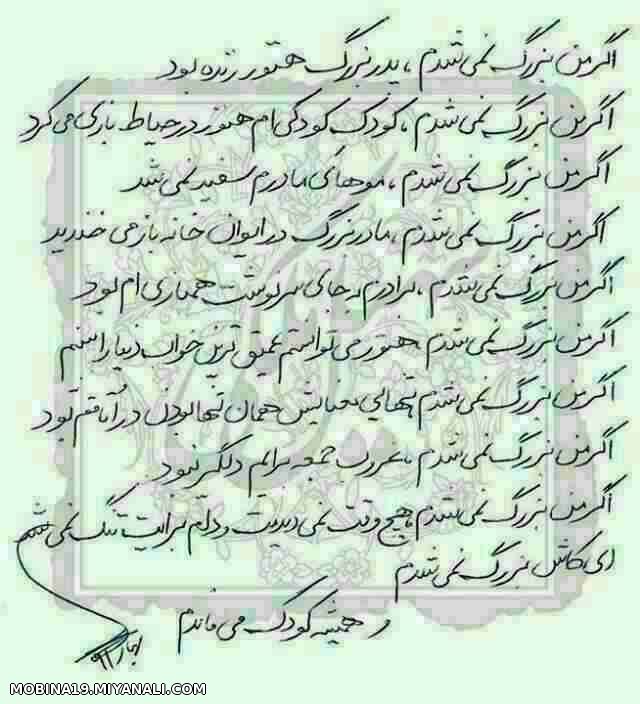 اگر من بزرگ نمی شدم ، پدربزرگ هنوز زنده بود
اگر من بزرگ نمی شدم ، کودک کودکی ام هنوز در حیاط بازی می کرد
اگر من بزرگ نمی شدم ، موهای مادرم سفید نمی شد
اگر من بزرگ نمی شدم ، مادربزرگ در ایوان خانه باز می خندید
اگر من بزرگ نمی شدم ، برادرم بجای سرنوشت همبازی ام بود
اگر من بزرگ نمی شدم هنوز می توانستم عمیق ترین خواب دنیا را
اگر من بزرگ نمی شدم تنهایی معنایش همان تنها بودن در اتاقم بود
اگر من بزرگ نمی شدم ، غروب جمعه برایم دلگیر نبود
اگر من بزرگ نمی شدم ، هیچ وقت نمی دیدمت و دلم برایت تنگ نمی شد
ای کاش بزرگ نمی شدم
و همیشه کودک می ماندم
بهار ۹۱
MOBINA19.MIYANALI.COM